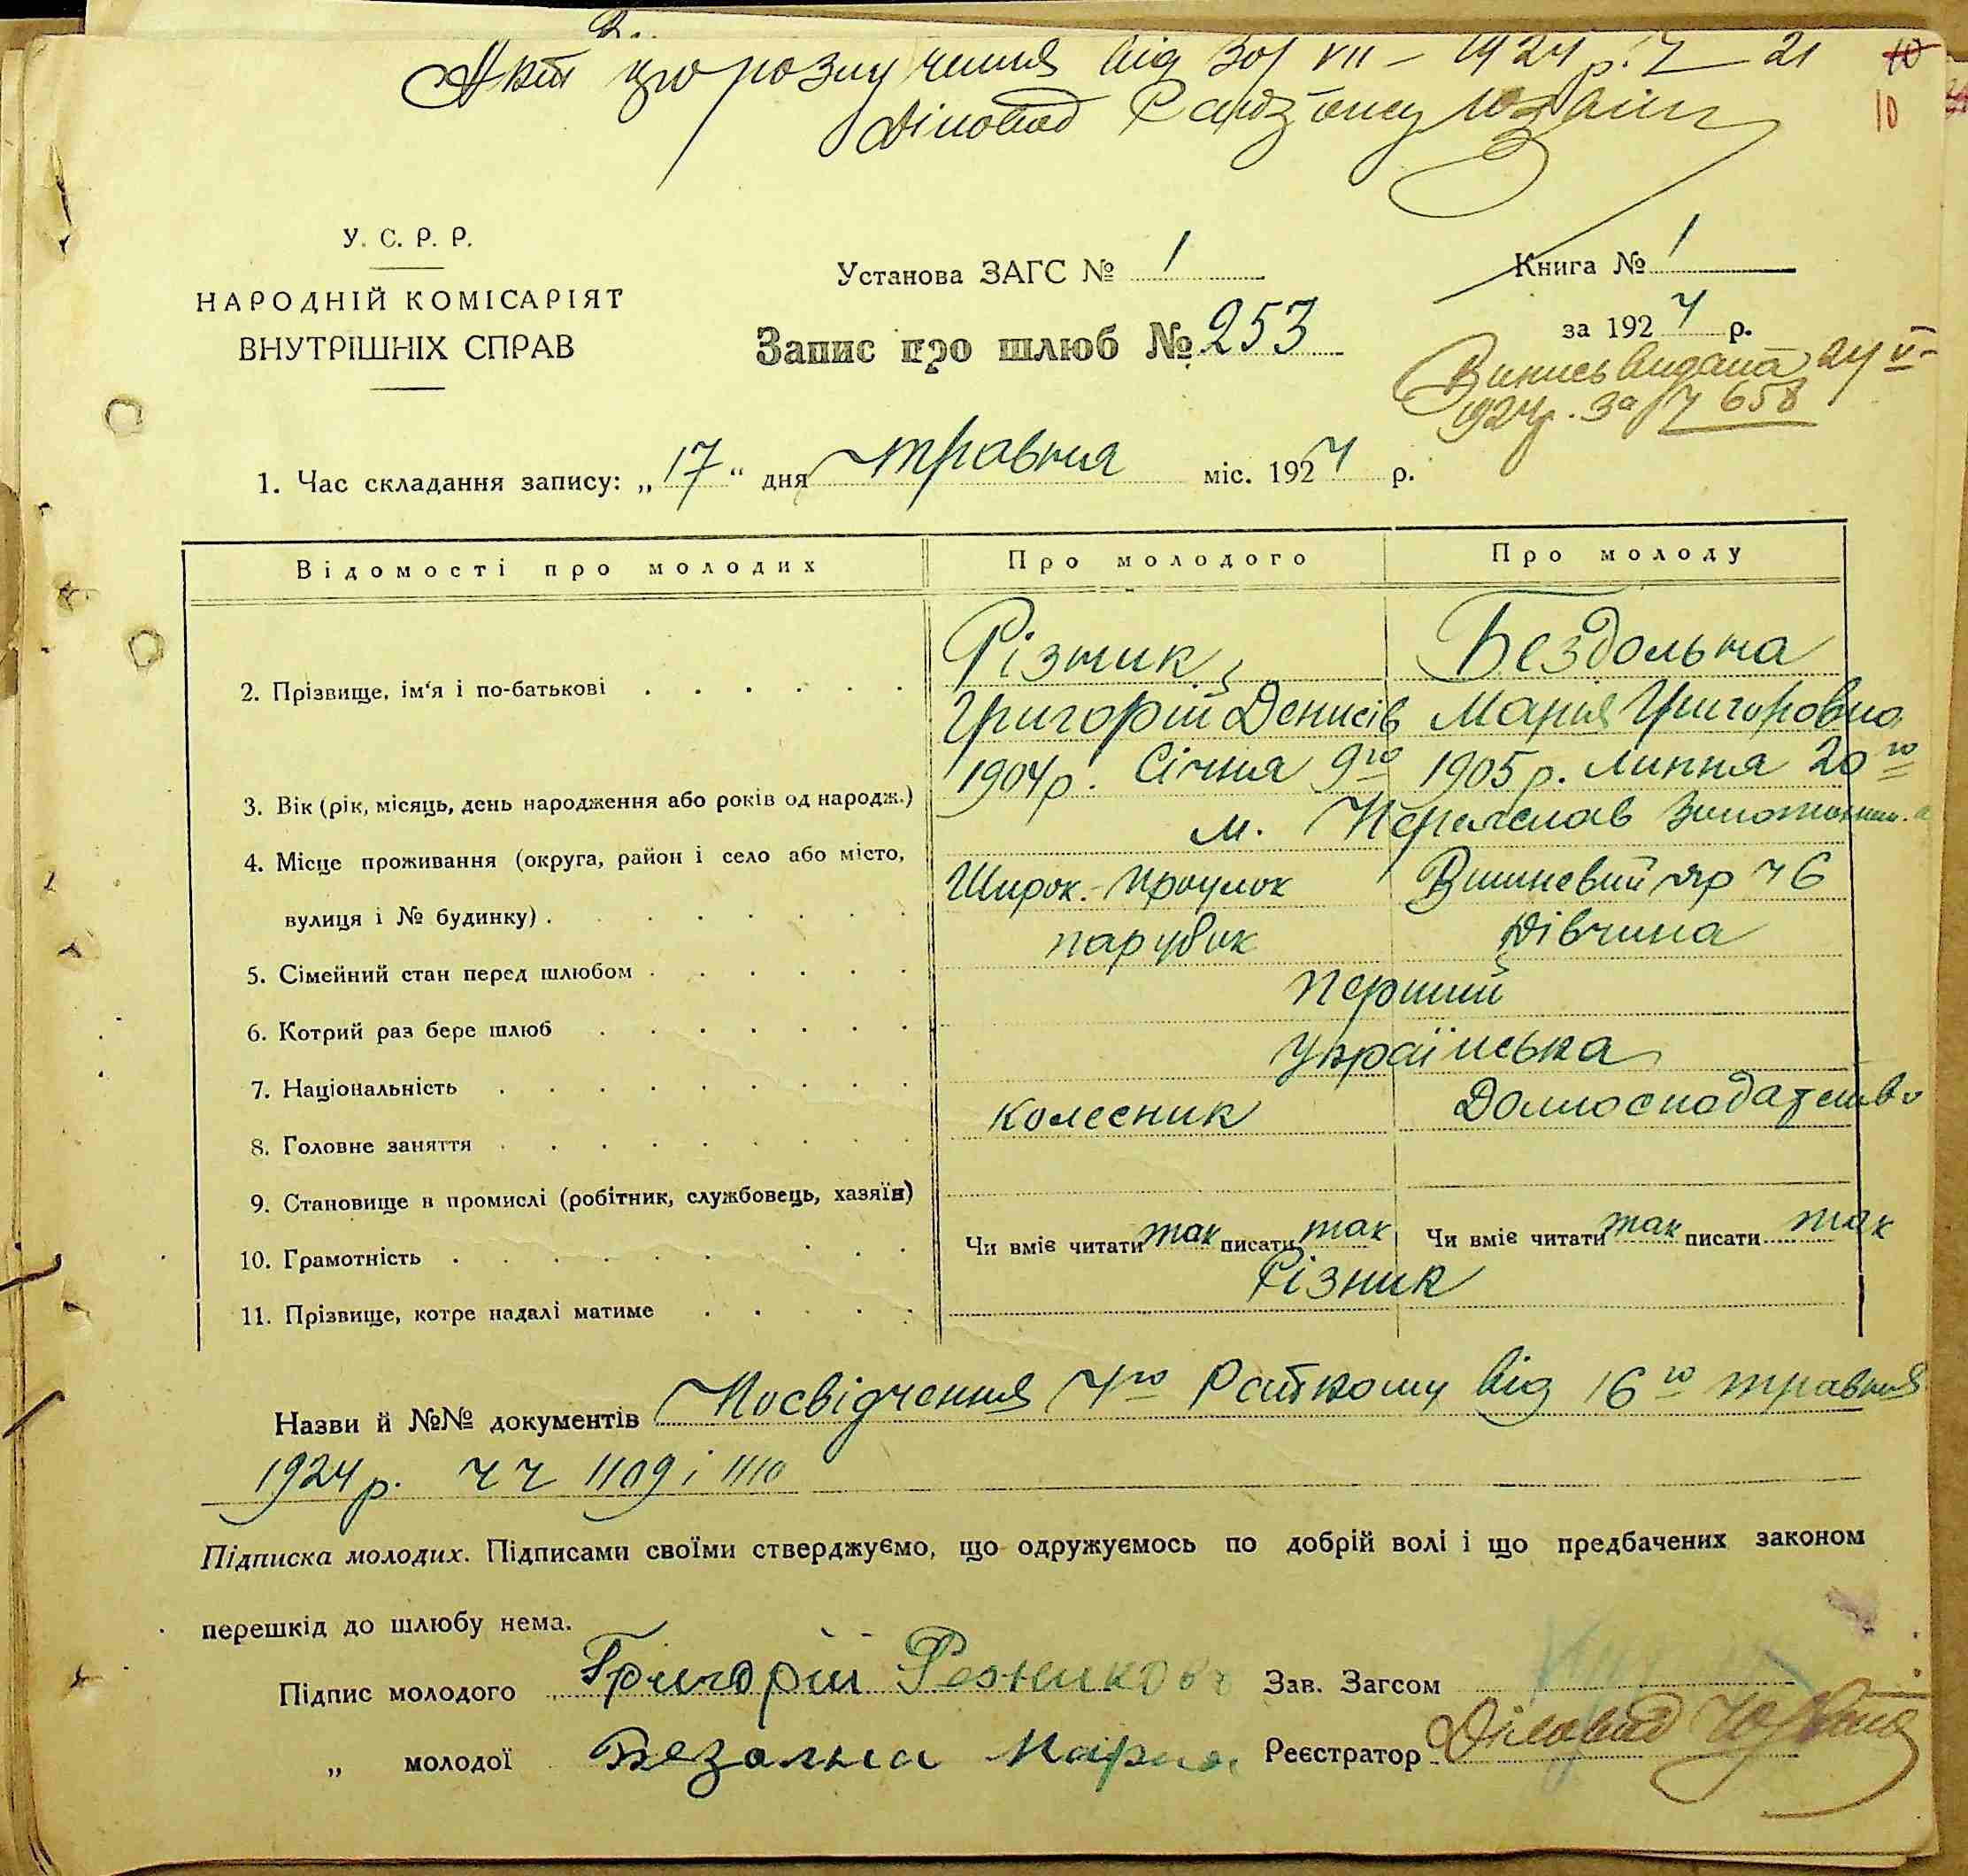 Акт про розлучення від 30/VII - 1924 р. Ч 21
10
Діловод
10
У. С. Р. Р.
НАРОДНІЙ КОМІСАРІЯТ
ВНУТРІШНІХ СПРАВ
Установа ЗАГС № 1
Запис про шлюб № 253
Книга № 1
за 1924 р.
Випись видана 24 V-
1924р. за Ч 658
1. Час складання запису: „17“ дня травня міс. 1924 р.
Відомості про молодих
Про молодого
Про молоду
2. Прізвище, ім‘я і по-батькові
Різник
Григорій Денисів
Бездольна
Мария Григоровна
3. Вік (рік, місяць, день народження або років од народж.)
1904р. Січня 9го
1905р. липня 20го
4. Місце проживання (округа, район і село або місто,
м. Переяслав
вулиця і № будинку)
Широк. проулок
Вишневий яр Ч 6
5. Сімейний стан перед шлюбом
парубок
Дівчина
6. Котрий раз бере шлюб
перший
7. Національність
Українська
8. Головне заняття
колесник
9. Становище в промислі (робітник, службовець, хазяїн)
10. Грамотність
Чи вміє читати так писати так
Чи вміє читати так писати так
11. Прізвище, котре надалі матиме
Різник
Назви й №№ документів Посвідчення 4го Райкому від 16го травня
1924р. ч ч 1109 і 1110
Підписка молодих. Підписами своїми стверджуємо, що одружуємось по добрій волі і що предбачених законом
перешкід до шлюбу нема.
Підпис молодого Григорій
Зав. Загсом
„ молодої Безолна Мария
Реєстратор Діловод